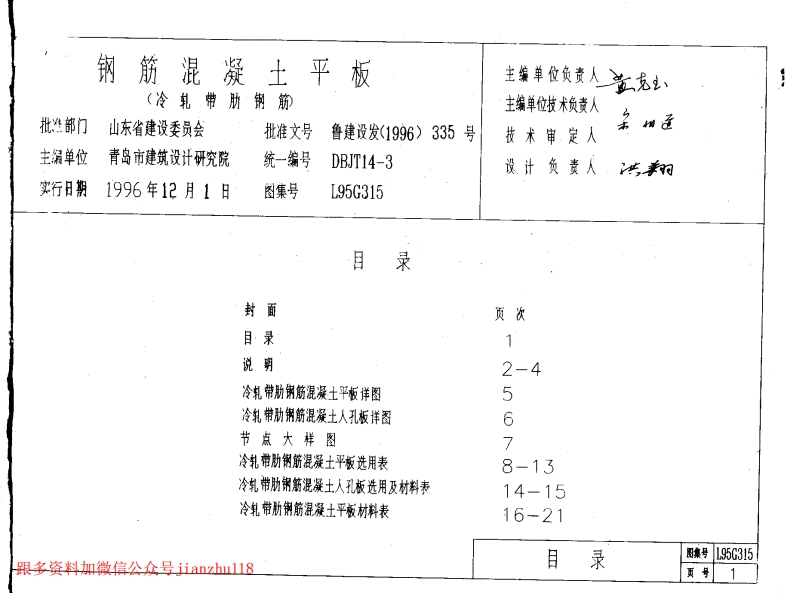 钢筋混凝土平板
（冷轧带肋钢筋）
批准部门 山东省建设委员会 批准文号 鲁建设发(1996) 335 号
主编单位 青岛市建筑设计研究院 统一编号 DBJT14-3
实行日期 1996年12月1日 图集号 L95G315
主编单位负责人
主编单位技术负责人
技术审定人
设计负责人 洪翔
目录
封面 页次
目录 1
说明 2-4
冷轧带肋钢筋混凝土平板详图 5
冷轧带肋钢筋混凝土人孔板详图 6
节点大样图 7
冷轧带肋钢筋混凝土平板选用表 8-13
冷轧带肋钢筋混凝土人孔板选用及材料表 14-15
冷轧带肋钢筋混凝土平板材料表 16-21
目录 图集号 L95G315
页号 1
跟多资料加微信公众号jianzhu118